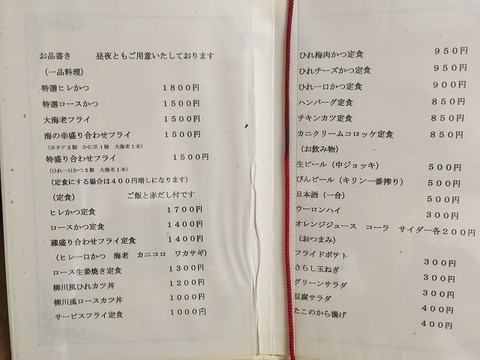 お品書き　　昼夜ともご用意いたしております
（一品料理）
特選ヒレかつ　１８００円
特選ロースかつ　１５００円
大海老フライ　１５００円
海の幸盛り合わせフライ　１５００円
（ホタテ２個　かに爪１個　大海老１本）
特盛り合わせフライ　１５００円
（ひれ一口かつ２個　大海老１本）
（定食にする場合は４００円増しになります）
（定食）　　ご飯と赤だし付です
ヒレかつ定食　１７００円
ロースかつ定食　１４００円
蔵盛り合わせフライ定食　１４００円
（ヒレ一ロかつ　海老　カニコロ　ワカサギ）
ロース生姜焼き定食　１３００円
柳川風ひれカツ丼　１２００円
柳川風ロースカツ丼　１０００円
サービスフライ定食　１０００円
ひれ梅肉かつ定食　９５０円
ひれチーズかつ定食　９５０円
ひれ一口かつ定食　９００円
ハンバーグ定食　８５０円
チキンカツ定食　８５０円
カニクリームコロッケ定食　８５０円
（お飲み物）
生ビール（中ジョッキ）　５００円
びんビール（キリン一番搾り）　５００円
日本酒（一合）　５００円
ウーロンハイ　３００円
オレンジジュース　コーラ　サイダー各２００円
（おつまみ）
フライドポテト　３００円
さらし玉ねぎ　３００円
グリーンサラダ　３００円
豆腐サラダ　４００円
たこのから揚げ　４００円